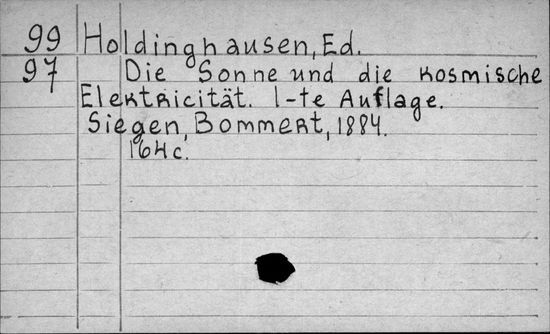 99 Holdinghausen, Ed.
97 Die Sonne und die kosmische
Elektricität. 1-te Auflage.
Siegen, Bommert, 1884.
164 c.